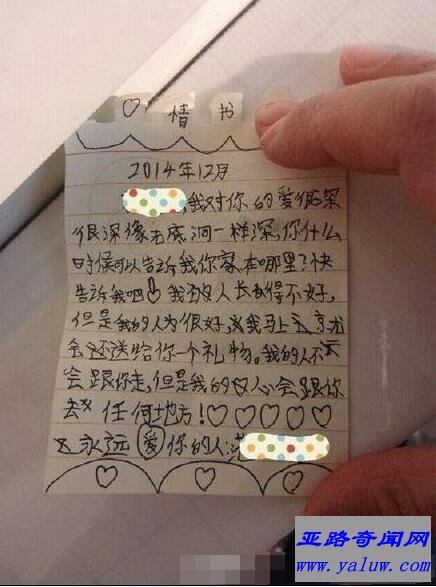 ♡ 情 书
2014年12月
,我对你的爱很深
很深像无底洞一样深,你什么
时候可以告诉我你家在哪里?快
告诉我吧 我 人长 得不好,
但是我的人为很好,我马上
会还送给你一个礼物。我的人不
会跟你走,但是我的心会跟你
去 任何地方!♡♡♡♡♡
永远爱你的人:
亚路奇闻网
www.yaluw.com